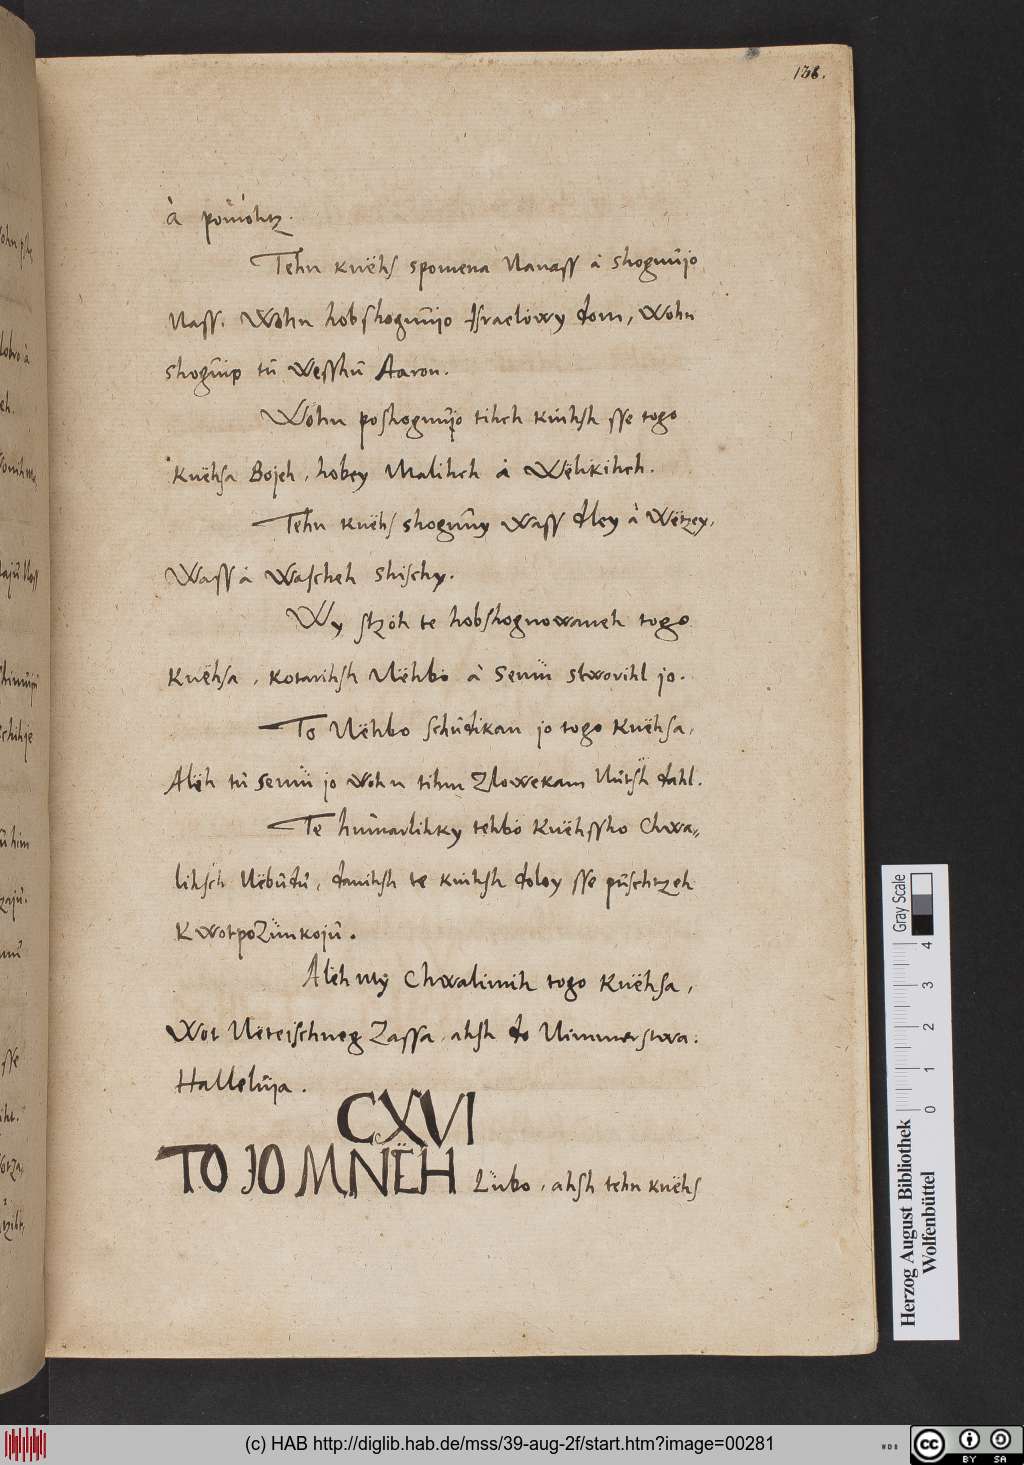 136.
à pomohtz.
Tehn knëhs spomena Nanass à shognüjo
Nass. Wohn hobshognüjo Israelowy dom, Wohn
shognüjo tü Wesshü Aaron.
Wohn poshognüjo tihch knihsh sse togo
knëhsa Bojeh, hobey Malihch à Wëlikihch.
Tehn knëhs shognüy Wass dley à Wëtzey,
Wass à Wascheh shischy.
Wy stzoh te hobshognowaneh togo
Knëhsa, kotarihsh Nëhbo à Semü stworihl jo.
To Nëhbo schüdikan jo togo Knëhsa,
Alëh tü Semü jo wohn tihm Zlowekam Nütsh dahl.
Te hümarlihky tehbo Knëhssho Chwa=
lihsch Nëbüdü, danihsh te knihsh doloy sse püschtzeh
K wotpoZünkojü.
Alëh my Chwalimih togo Knëhsa,
Wot Neteischneg Zassa, ahsh do Nimmerstwa.
Hallelüja.
CXVI
TO JO MNËH Lübo, ahsh tehn knëhs
Gray Scale
0 1 2 3 4
Herzog August Bibliothek
Wolfenbüttel
(c) HAB http://diglib.hab.de/mss/39-aug-2f/start.htm?image=00281
cc BY SA